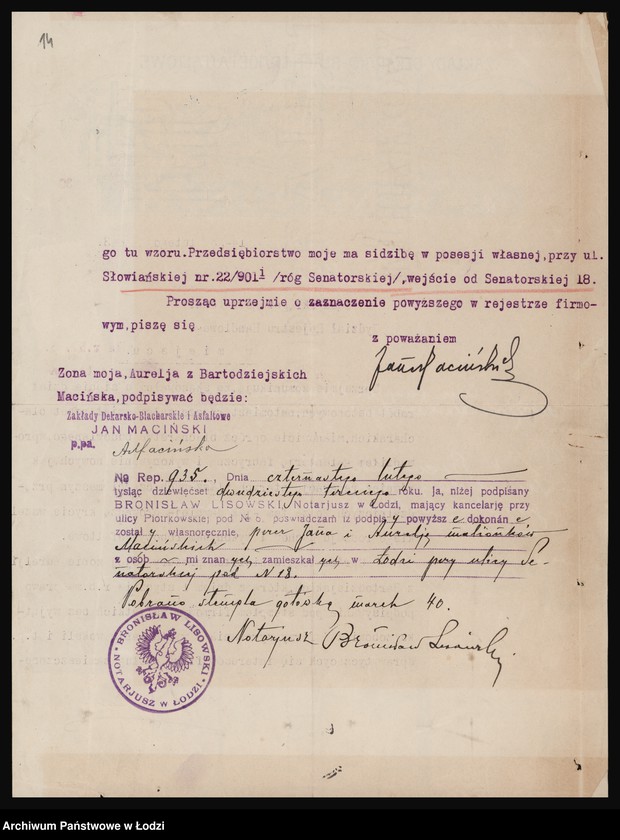 14
go tu wzoru.Przedsiębiorstwo moje ma sidzibę w posesji własnej,przy ul.
Słowiańskiej nr.22/901i /róg Senatorskiej/,wejście od Senatorskiej 18.
Prosząc uprzejmie o zaznaczenie powyższego w rejestrze firmo-
wym,piszę się
z poważaniem
Jan Maciński
Żona moja,Aurelja z Bartodziejskich
Macińska,podpisywać będzie:
Zakłady Dekarsko-Blacharskie i Asfaltowe
JAN MACIŃSKI
p.pa.
AMacińska
No Rep. 935., Dnia czternastego lutego
tysiąc dziewięćset dwudziestego trzeciego roku. Ja, niżej podpisany
BRONISŁAW LISOWSKI, Notarjusz w Łodzi, mający kancelarję przy
ulicy Piotrkowskiej pod № 6, poświadczam iż podpisy powyższe dokonane
zostały własnoręcznie, przez Jana i Aurelję małżonków
Macińskich
z osób mi znanych, zamieszkałych w Łodzi przy ulicy Se-
natorskiej pod N 18.
Pobrano stempla gotówką marek 40.
Notarjusz Bronisław Lisowski
BRONISŁAW LISOWSKI
NOTARJUSZ W ŁODZI
Archiwum Państwowe w Łodzi